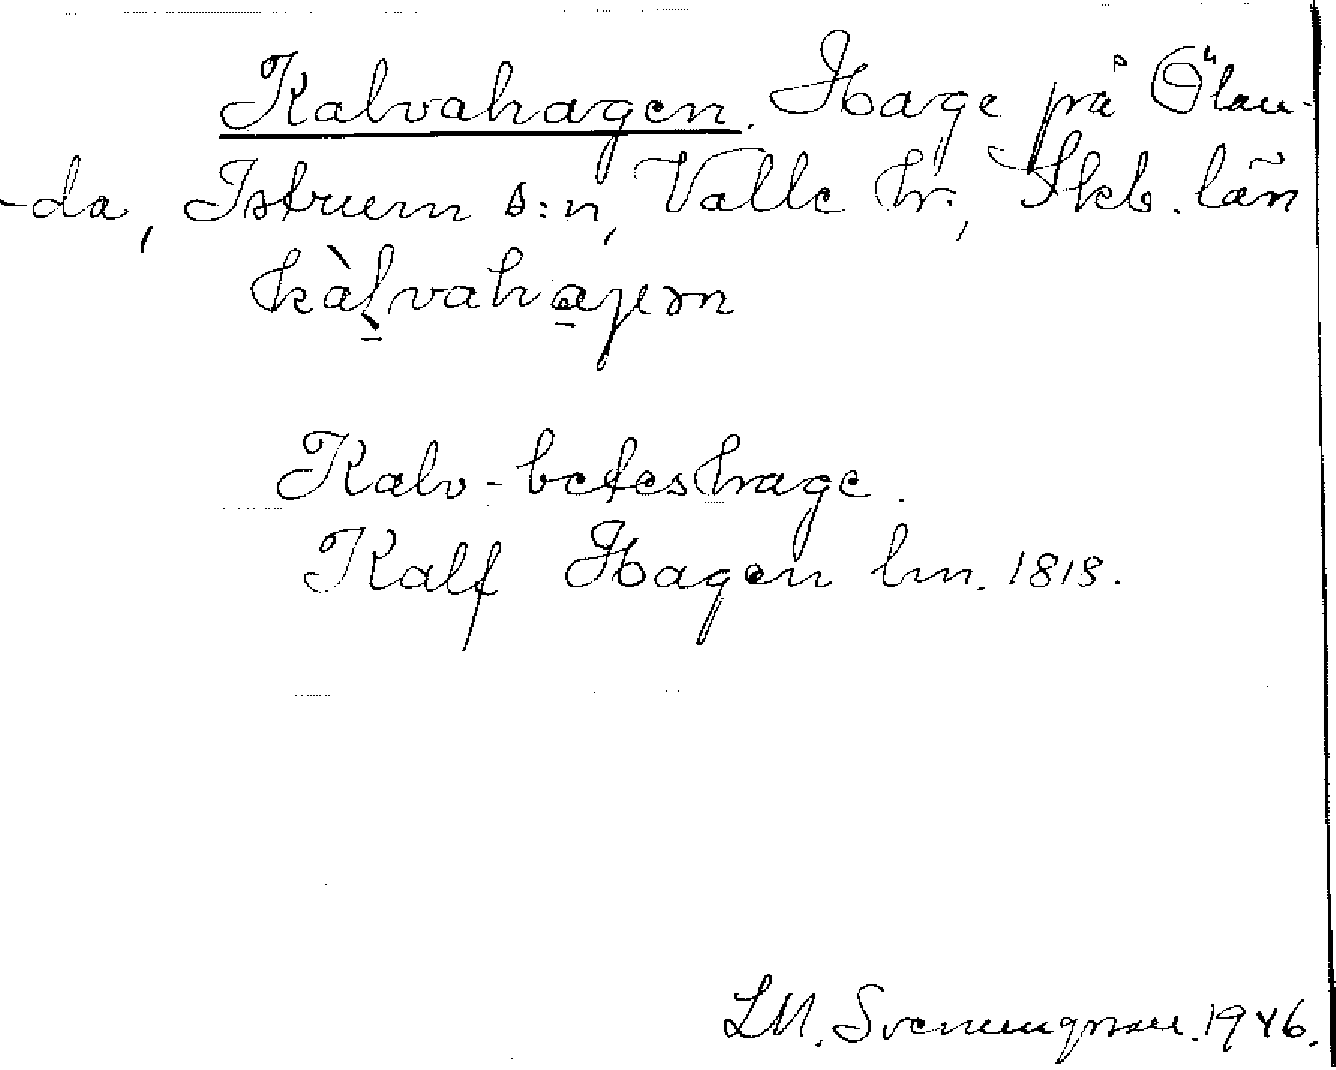 Kalvahagen. Hage på Ölan-
-da, Istrum s:n, Valle hr, Skb. län
kàlvahagen
Kalv-beteshage.
Kalf Hagen lm. 1818.
LM. Svenungsson. 1946.